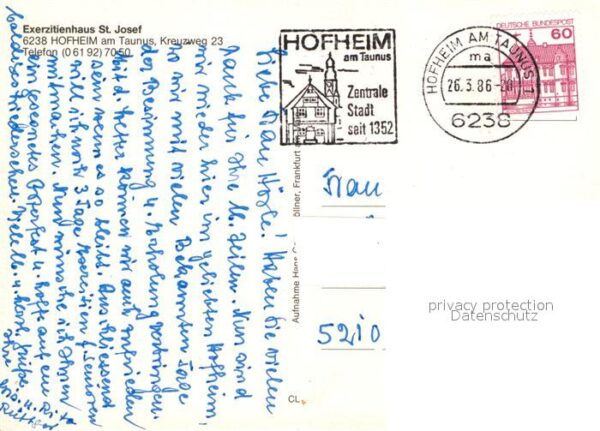 Exerzitienhaus St. Josef
6238 HOFHEIM am Taunus, Kreuzweg 23
Telefon (0 61 92) 70 50
HOFHEIM
am Taunus
Zentrale
Stadt
seit 1352
HOFHEIM AM TAUNUS 1
ma
26.3.86
6238
DEUTSCHE BUNDESPOST
60
Liebe Frau Höxle! Haben Sie vielen
Dank für Ihre lb. Zeilen. Nun sind
wir wieder hier im geliebten Hofheim,
wo wir mit vielen Bekannten Tage
der Besinnung u. Erholung verbringen.
Mit d. Wetter können wir auch zufrieden
sein wenn es so bleibt. Anschliessend
will ich noch 3 Tage Exerzitien f. Senioren
mitmachen. Nun wünsche ich Ihnen
ein gesegnetes Osterfest u. hoffe auf ein
Wiedersehen. Viele lb. u. herzl. Grüße
Ihre
u. Rita
Aufnahme Hans
öllner, Frankfurt
CL
Frau
5210
privacy protection
Datenschutz